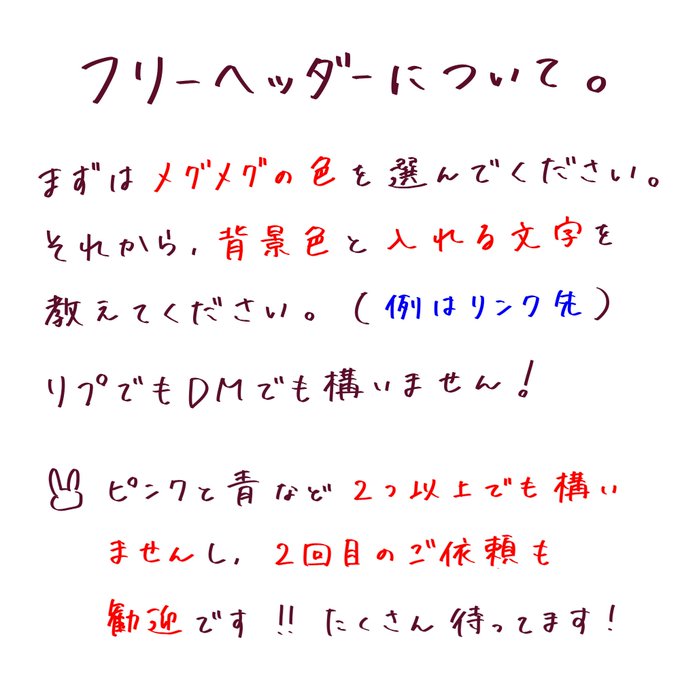 フリーヘッダーについて。
まずはメグメグの色を選んでください。
それから、背景色と入れる文字を
教えてください。(例はリンク先)
リプでもDMでも構いません!
ピンクと青など2つ以上でも構い
ませんし、2回目のご依頼も
歓迎です!! たくさん待ってます!